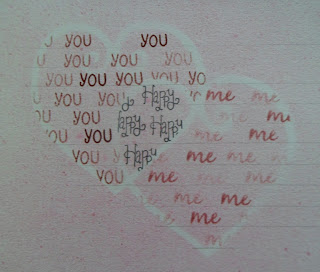 U YOU YOU
YOU YOU YOU
U YOU YOU YOU YOU YO
YOU YOU YOU Happy me me
YOU YOU me me me
Happy Happy
U YOU YOU me me
YOU YOU Happy me me me
YOU me me me
me me me
me me
m